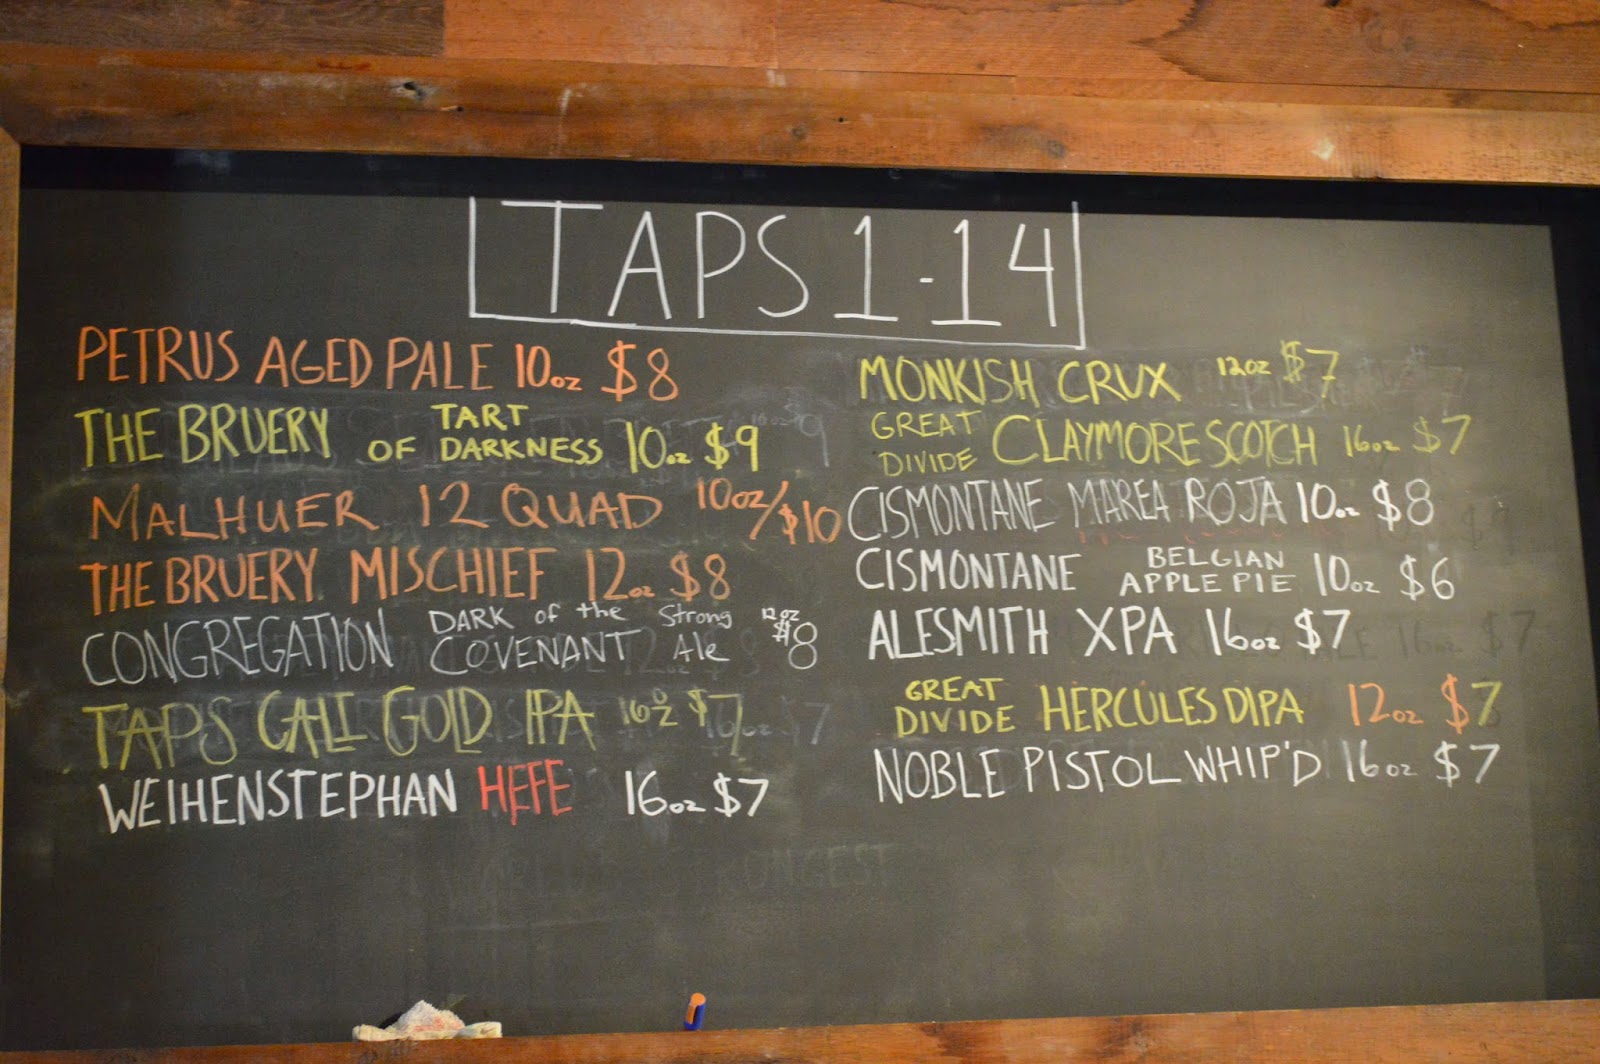 TAPS 1-14
PETRUS AGED PALE 10oz $8
THE BRUERY TART OF DARKNESS 10oz $9
MALHUER 12 QUAD 10oz/$10
THE BRUERY MISCHIEF 12oz $8
CONGREGATION DARK of the COVENANT Strong Ale 12oz $8
TAPS CALI GOLD IPA 16oz $7
WEIHENSTEPHAN HEFE 16oz $7
MONKISH CRUX 12oz $7
GREAT DIVIDE CLAYMORE SCOTCH 16oz $7
CISMONTANE MAREA ROJA 10oz $8
CISMONTANE BELGIAN APPLE PIE 10oz $6
ALESMITH XPA 16oz $7
GREAT DIVIDE HERCULES DIPA 12oz $7
NOBLE PISTOL WHIP'D 16oz $7